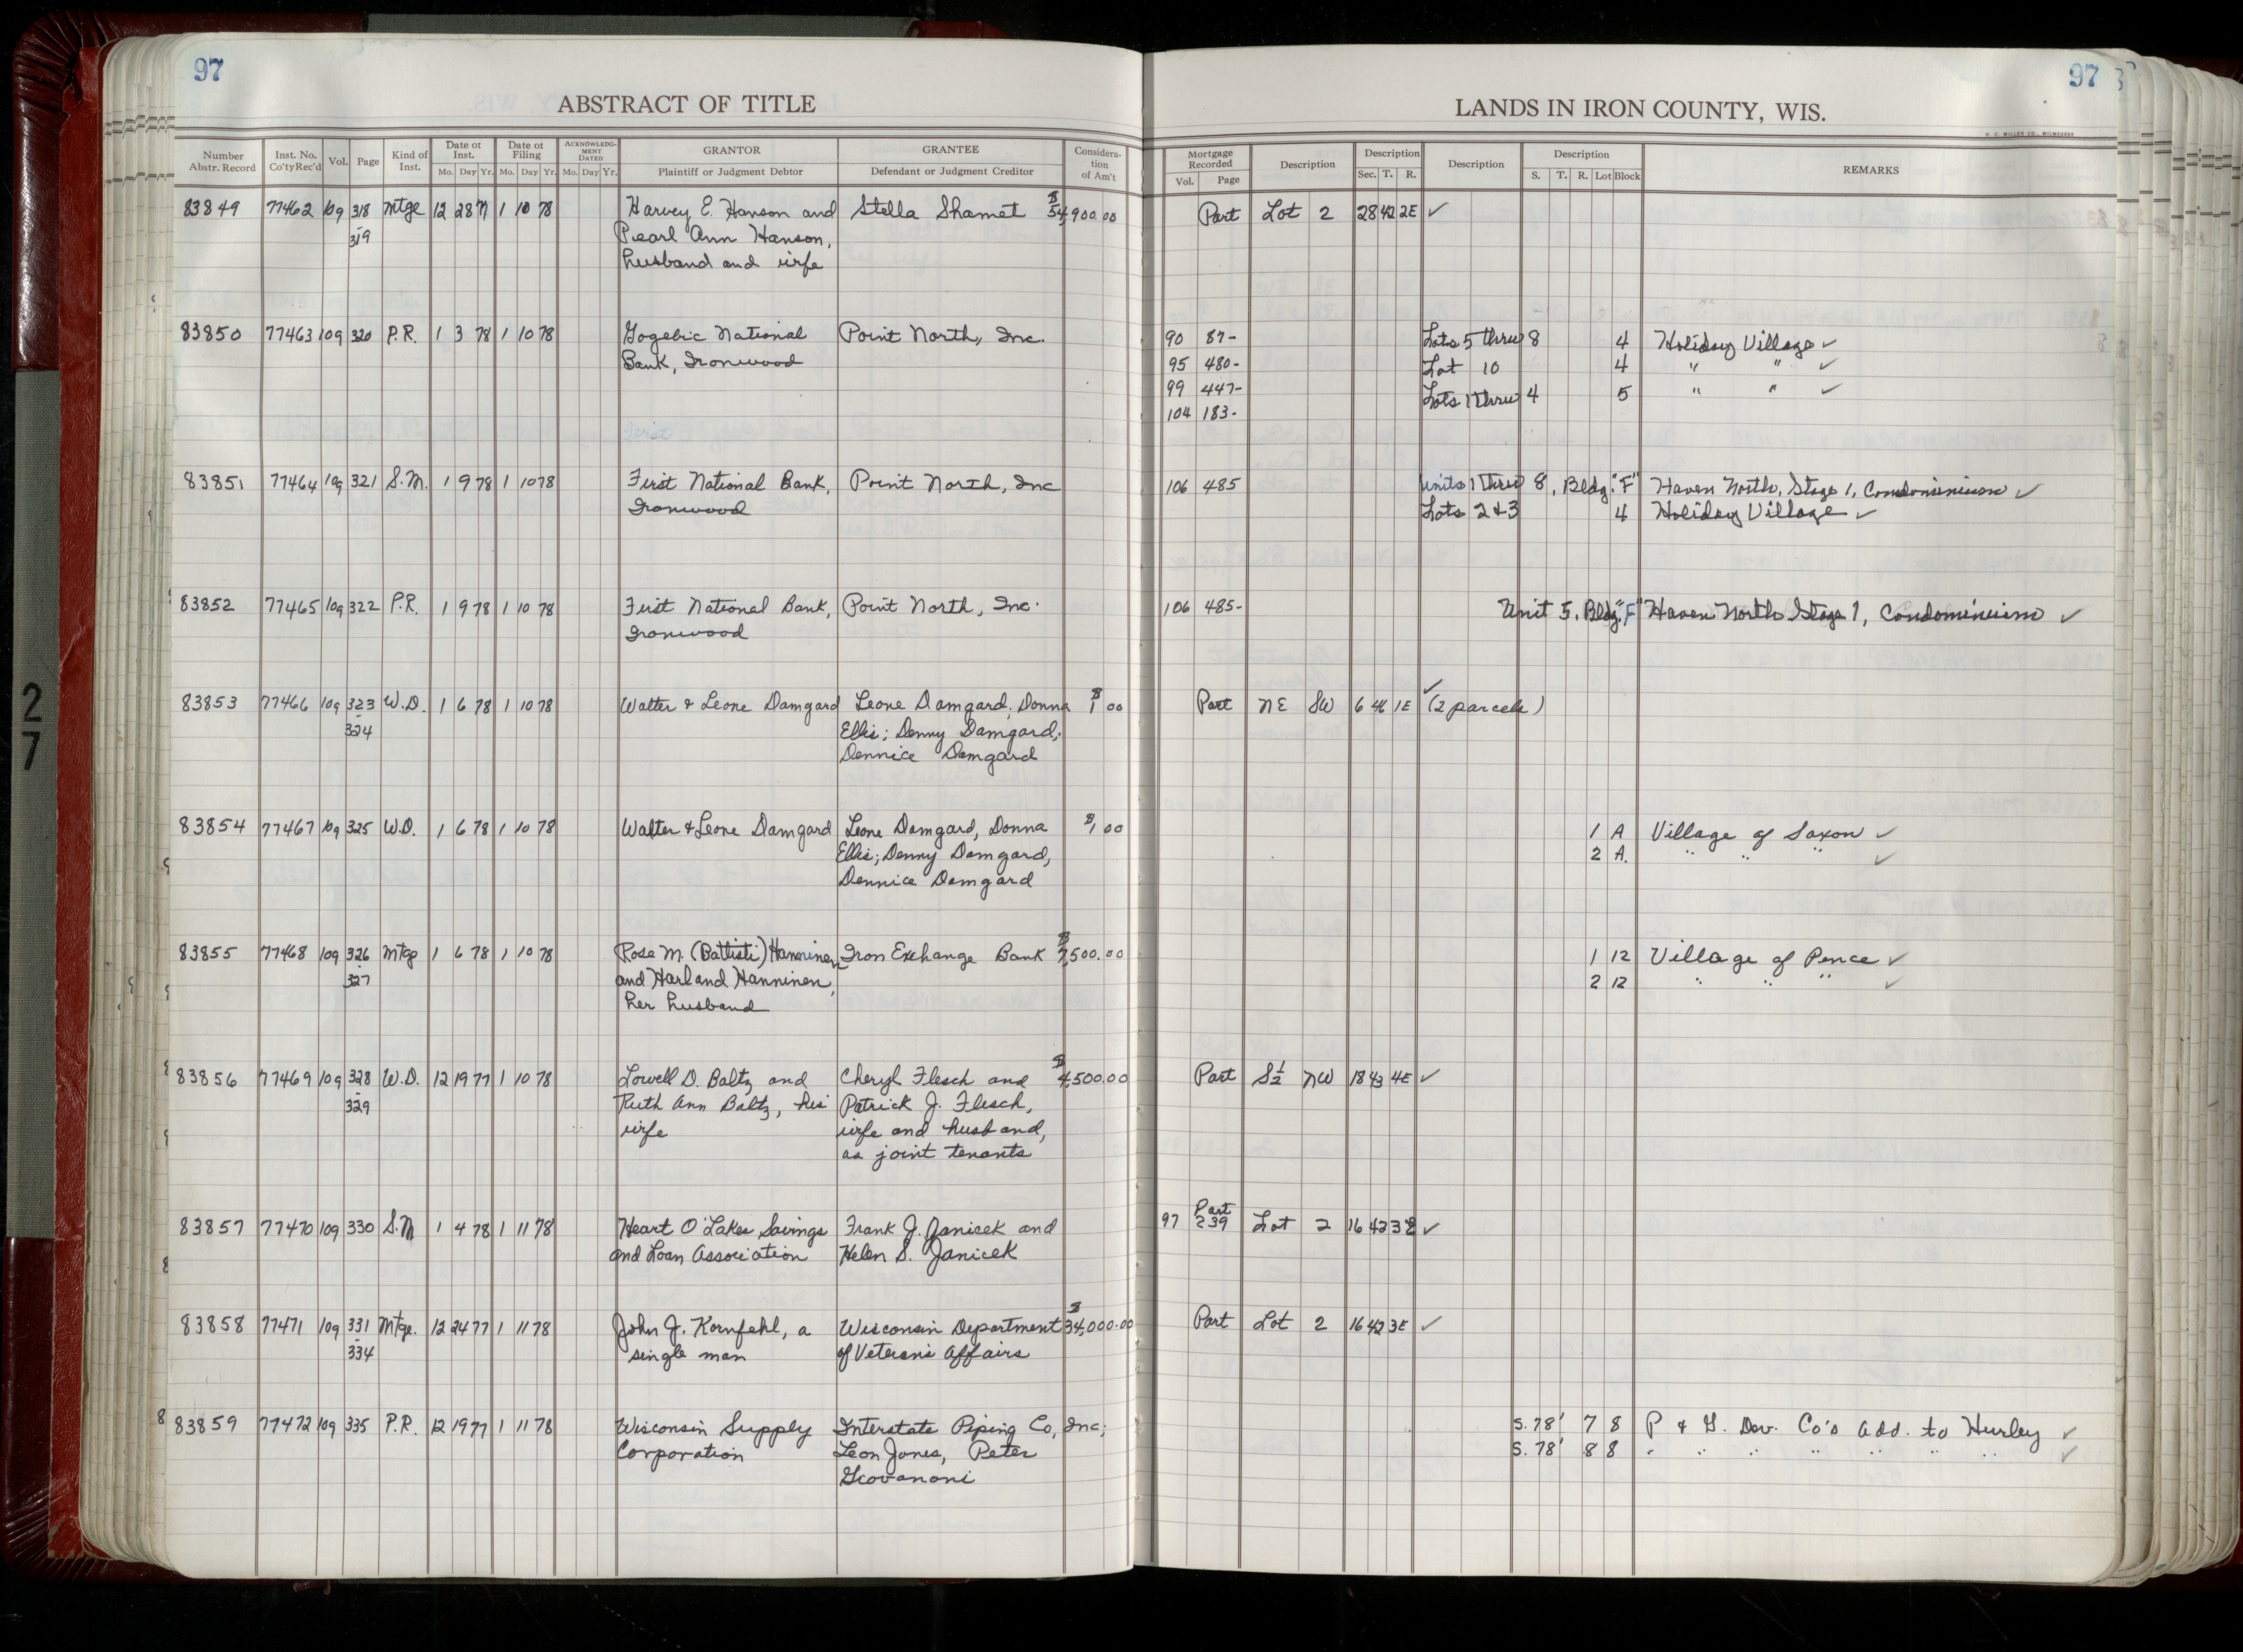 97
ABSTRACT OF TITLE
Number Abstr. Record Inst. No. Co'ty Rec'd Vol. Page Kind of Inst. Date of Inst. Mo. Day Yr. Date of Filing Mo. Day Yr. ACKNOWLEDGMENT DATED Mo. Day Yr. GRANTOR Plaintiff or Judgment Debtor GRANTEE Defendant or Judgment Creditor Consideration of Am't
83849 77462 109 318 Mtge 12 28 77 1 10 78 Harvey E. Hanson and Stella Shamet $54,900.00
319 Pearl Ann Hanson,
husband and wife
83850 77463 109 320 P.R. 1 3 78 1 10 78 Gogebic National Point North, Inc.
Bank, Ironwood
83851 77464 109 321 S.M. 1 9 78 1 10 78 First National Bank, Point North, Inc
Ironwood
83852 77465 109 322 P.R. 1 9 78 1 10 78 First National Bank, Point North, Inc.
Ironwood
83853 77466 109 323 W.D. 1 6 78 1 10 78 Walter & Leone Damgard Leone Damgard; Donna $1 00
324 Ellis; Denny Damgard;
Dennice Damgard
83854 77467 109 325 W.D. 1 6 78 1 10 78 Walter & Leone Damgard Leone Damgard, Donna $1 00
Ellis; Denny Damgard,
Dennice Damgard
83855 77468 109 326 Mtge 1 6 78 1 10 78 Rose M. (Battisti) Hanninen Iron Exchange Bank $7,500.00
327 and Harland Hanninen,
her husband
83856 77469 109 328 W.D. 12 19 77 1 10 78 Lowell D. Baltz and Cheryl Flesch and $4,500.00
329 Ruth Ann Baltz, his Patrick J. Flesch,
wife wife and husband,
as joint tenants
83857 77470 109 330 S.M 1 4 78 1 11 78 Heart O'Lakes Savings Frank J. Janicek and
and Loan Association Helen S. Janicek
83858 77471 109 331 Mtge. 12 24 77 1 11 78 John J. Kornfehl, a Wisconsin Department $34,000.00
334 single man of Veterans Affairs
83859 77472 109 335 P.R. 12 19 77 1 11 78 Wisconsin Supply Interstate Piping Co, Inc;
Corporation Leon Jones, Peter
Giovanoni
97
LANDS IN IRON COUNTY, WIS.
H. C. MILLER CO., MILWAUKEE
Mortgage Recorded Vol. Page Description Description Sec. T. R. Description Description S. T. R. Lot Block REMARKS
Part Lot 2 28 42 2E ✓
90 87- Lots 5 thru 8 4 Holiday Village ✓
95 480- Lot 10 4 " " ✓
99 447- Lots 1 thru 4 5 " " ✓
104 183-
106 485 Units 1 thru 8, Bldg. "F" Haven North, Stage 1, Condominium ✓
Lots 2 & 3 4 Holiday Village ✓
106 485- Unit 5, Bldg. "F" Haven North Stage 1, Condominium ✓
Part NE SW 6 46 1E ✓ (2 parcels)
1 A Village of Saxon ✓
2 A. " " " ✓
1 12 Village of Pence ✓
2 12 " " " ✓
Part S½ NW 18 43 4E ✓
Part
97 239 Lot 2 16 42 3E ✓
Part Lot 2 16 42 3E ✓
S. 78' 7 8 P & G. Dev. Co's Add. to Hurley ✓
S. 78' 8 8 " " " " " " " ✓
27